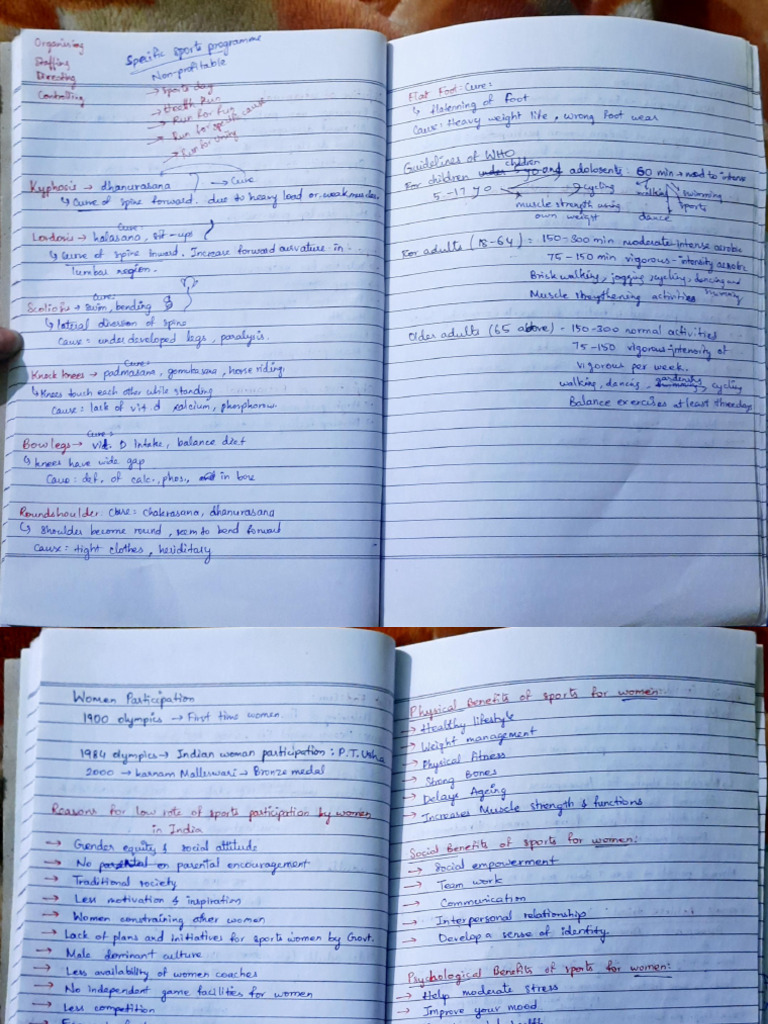 Organising
Staffing
Directing
Controlling
Specific sports programme
Non-profitable
→ Sports day
→ Health Run
→ Run for Fun
→ Run for specific cause
→ Run for unity
Kyphosis → dhanurasana → Cure
↳ Curve of spine forward. due to heavy load or weak muscles.
Cure:
Lordosis → halasana, sit-ups
↳ Curve of spine Inward. Increase forward curvature in
lumbar region.
Cure:
Scoliosis → swim, bending
↳ lateral diversion of spine
Cause: under developed legs, paralysis.
Cure:
Knock knees → padmasana, gomukasana, horse riding
↳ Knees touch each other while standing
Cause: lack of vit. d calcium, phosphorous.
Cure:
Bow legs → vit. D Intake, balance diet
↳ knees have wide gap
Cause: def. of calc., phos., in bose
Roundshoulder: Cure: chakrasana, dhanurasana
↳ Shoulder become round, seem to bend forward
Cause: tight clothes, heriditary
Flat Foot: Cure:
↳ flatenning of Foot
Cause: Heavy weight life, wrong foot wear
Guidelines of WHO
children
For children under 5 yo and adolosents: 60 min → mod to intense
5-17 yo → cycling walking swimming
sports
muscle strength using
own weight dance
For adults (18-64) = 150-300 min moderate-intense aerobic
75-150 min vigorous-intensity aerobic
Brick walking, jogging, cycling, dancing and
swimming
Muscle strengthening activities
Older adults (65 above) - 150-300 normal activities
75-150 vigorous-intensity of
vigorous per week.
gardening
walking, dancing, swimming, cycling
Balance exercises atleast three days
Women Participation
1900 olympics → First time women
1984 olympics → Indian woman participation: P.T. Usha
2000 → karnam Malleswari → Bronze medal
Reasons for low rate of sports participation by women
in India
→ Gender equity & social attitude
→ No parental encouragement
→ Traditional society
→ Less motivation & inspiration
→ Women constraining other women
→ Lack of plans and initiatives for sports women by Govt.
→ Male dominant culture
→ Less availability of women coaches
→ No independent game facilities for women
→ Less competition
Physical Benefits of sports for women:
→ Healthy lifestyle
→ Weight management
→ Physical fitness
→ Strong Bones
→ Delays Ageing
→ Increases Muscle strength & functions
Social Benefits of sports for women:
→ Social empowerment
→ Team work
→ Communication
→ Interpersonal relationship
→ Develop a sense of identity.
Psychological Benefits of sports for women:
→ Help moderate stress
→ Improve your mood